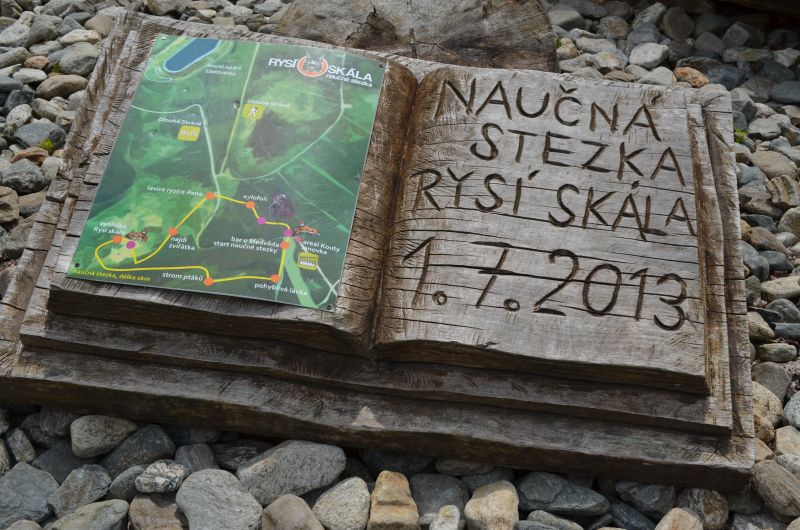 RYSÍ SKÁLA
naučná stezka
Horní nádrž
Elektrárny
Dlouhé Stráně
Dlouhé Stráně
BUS
lavice rysice Rana
xylofon
vyhlídka
Rysí skála
najdi
zvířátka
bar u Medvěda
start naučné
stezky
areál Kouty
naučná stezka, délka 2km
strom ptáků
pohyblivá lávka
NAUČNÁ
STEZKA
RYSÍ SKÁLA
1.7.2013